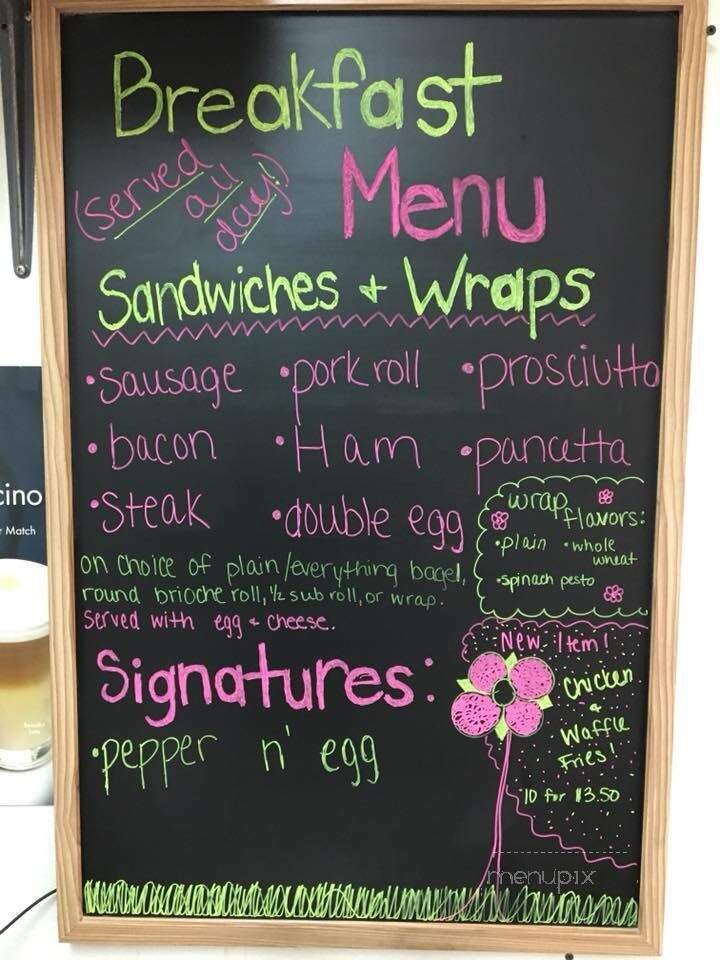 Breakfast
(served all day!)
Menu
Sandwiches + Wraps
•sausage •pork roll •prosciutto
•bacon •Ham •pancetta
•steak •double egg
wrap flavors:
•plain •whole wheat
•spinach pesto
on choice of plain/everything bagel,
round brioche roll, ½ sub roll, or wrap.
Served with egg + cheese.
Signatures:
•pepper n' egg
New Item!
Chicken
+
Waffle
Fries!
10 for $3.50
menupix
cino
Match